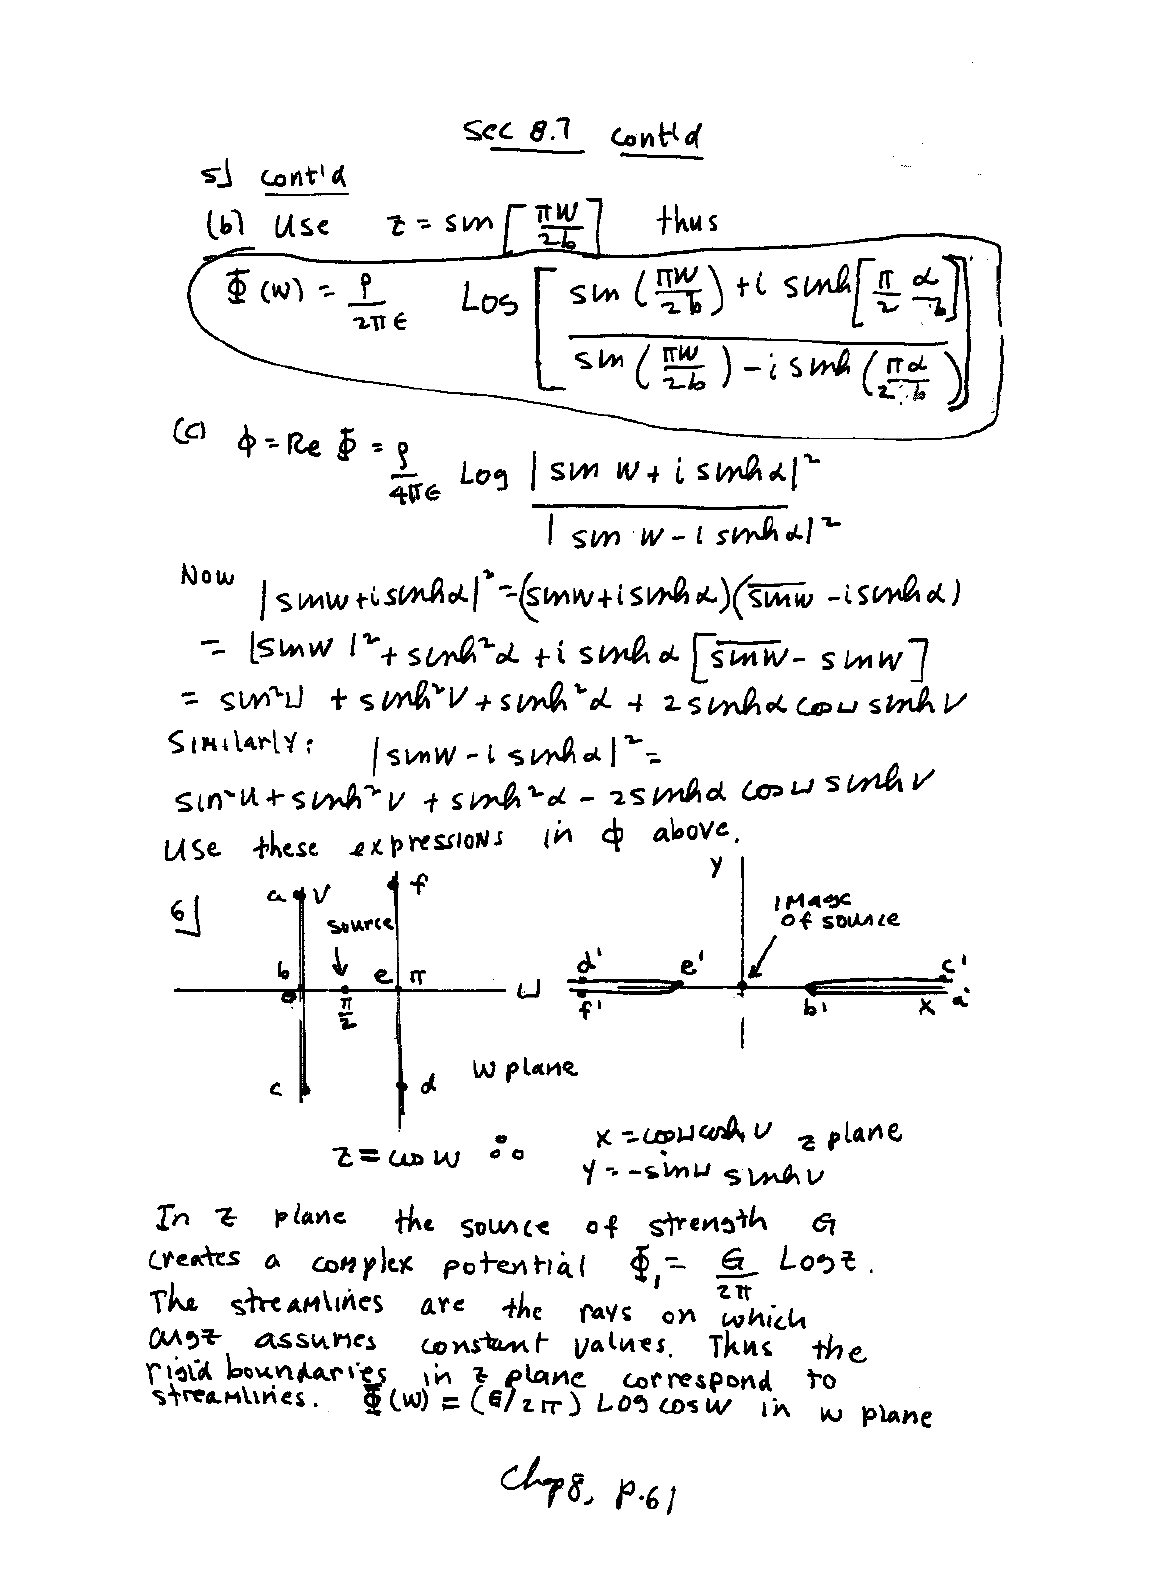 Sec 8.7 cont'd
5] cont'd
(b) Use z = sin [πw/2b] thus
Φ(w) = ρ/2πε Log [ (sin (πw/2b) + i sinh [π/2 α/b]) / (sin (πw/2b) - i sinh (πα/2b)) ]
(c) φ = Re Φ = ρ/4πε Log |sin w + i sinh α|² / |sin w - i sinh α|²
Now |sin w + i sinh α|² = (sin w + i sinh α)(s̅i̅n̅ ̅w̅ - i sinh α)
= |sin w|² + sinh² α + i sinh α [s̅i̅n̅ ̅w̅ - sin w]
= sin² u + sinh² v + sinh² α + 2 sinh α cos u sinh v
Similarly: |sin w - i sinh α|² =
sin² u + sinh² v + sinh² α - 2 sinh α cos u sinh v
Use these expressions in φ above.
6]
a v f
source
b e π u
0 π/2
c d w plane
y
image
of source
d' e' c'
f' b' x a'
z = cos w ∴
x = cos u cosh v z plane
y = - sin u sinh v
In z plane the source of strength G
creates a complex potential Φ₁ = G/2π Log z.
The streamlines are the rays on which
arg z assumes constant values. Thus the
rigid boundaries in z plane correspond to
streamlines. Φ(w) = (G/2π) Log cos w in w plane
Chap 8, p.61